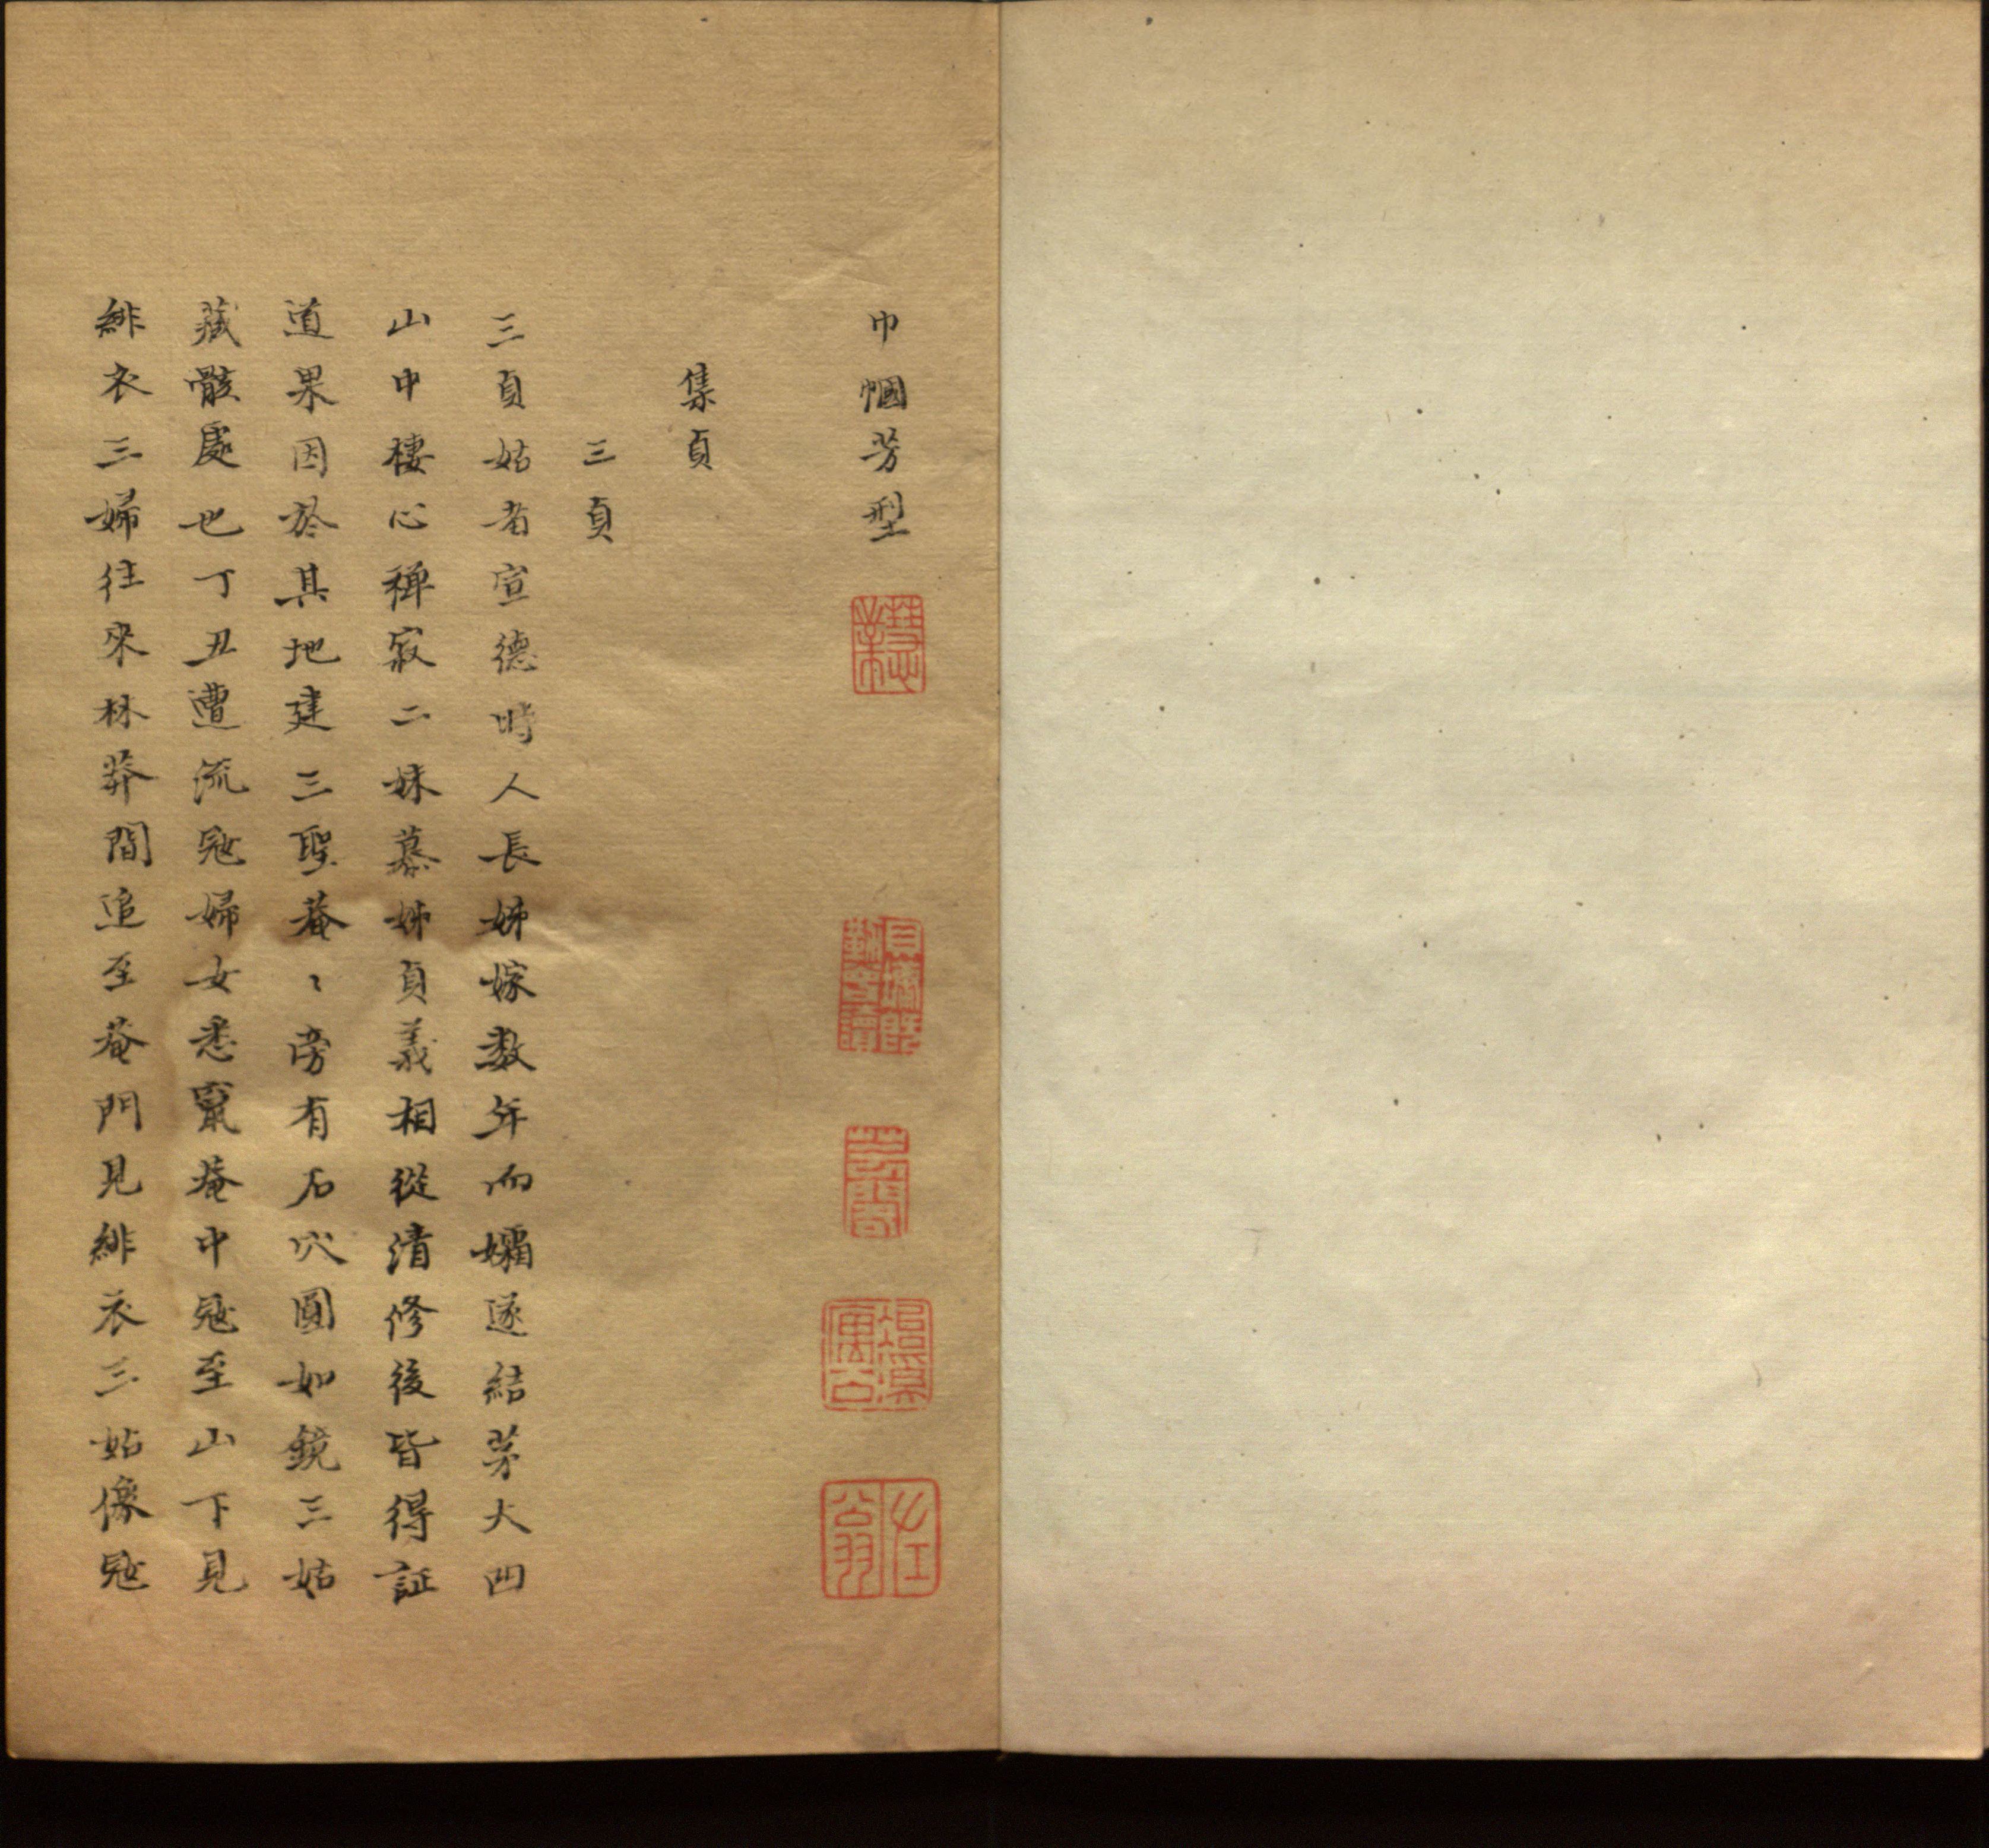 巾幗芳型
集貞
三貞
三貞姑者宣德時人長姊嫁数年而孀遂結茅大凹
山中棲心禅寂二妹慕姊貞義相從清修後皆得証
道果因於其地建三聖菴〻旁有石穴圓如鏡三姑
藏骸處也丁丑遭流冦婦女悉竄菴中冦至山下見
緋衣三婦往来林莽間追至菴門見緋衣三姑像冦
左公翁